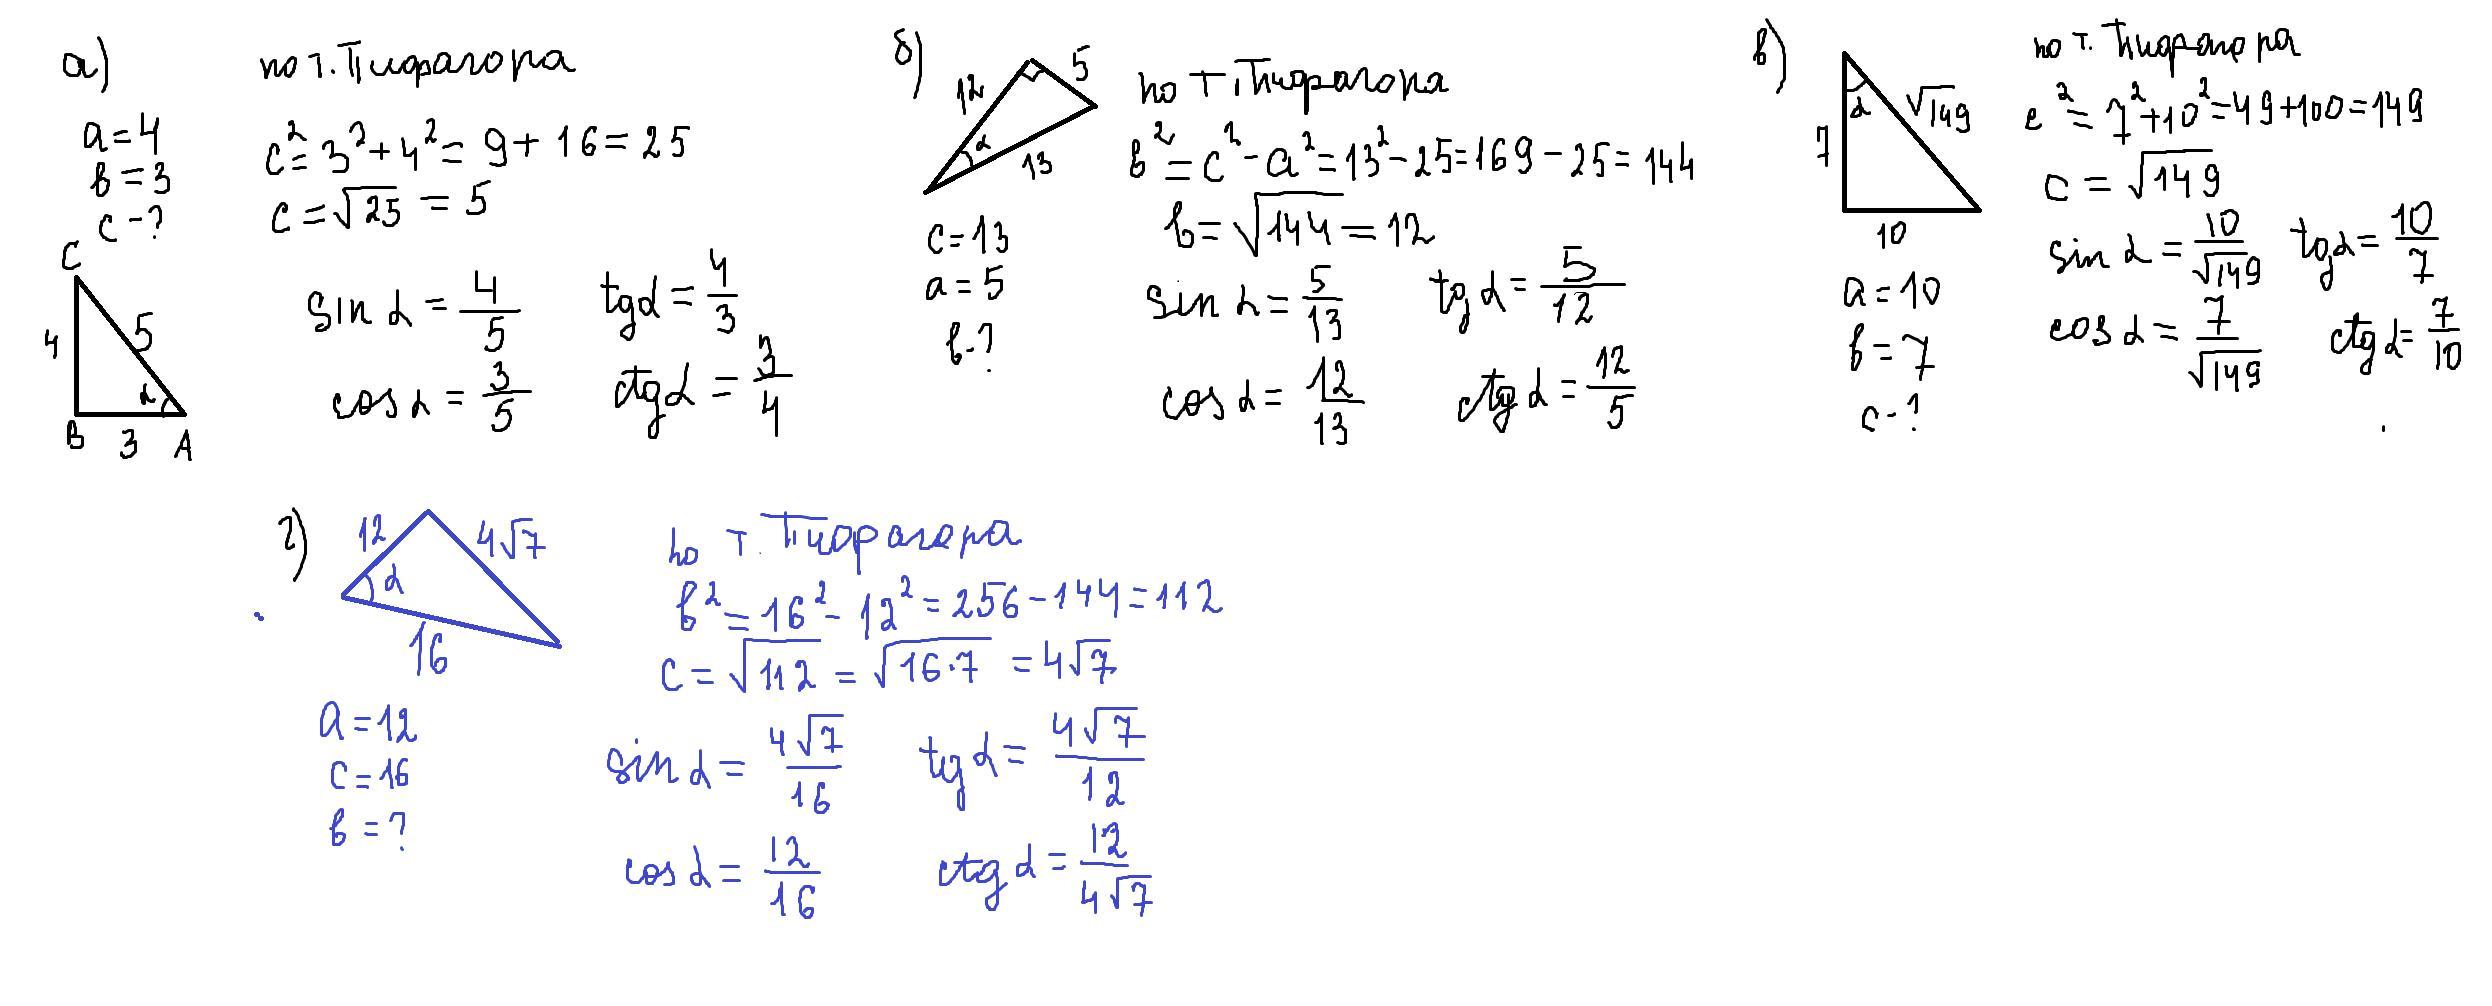 а)
по т. Пифагора
a = 4
в = 3
c - ?
c² = 3² + 4² = 9 + 16 = 25
c = √25 = 5
C
4
5
α
B
3
A
sin α = 4/5
tg α = 4/3
cos α = 3/5
ctg α = 3/4
б)
12
5
α
13
по т. Пифагора
в² = c² - a² = 13² - 25 = 169 - 25 = 144
в = √144 = 12
c = 13
a = 5
в - ?
sin α = 5/13
tg α = 5/12
cos α = 12/13
ctg α = 12/5
в)
α
√149
7
10
по т. Пифагора
c² = 7² + 10² = 49 + 100 = 149
c = √149
a = 10
в = 7
c - ?
sin α = 10/√149
tg α = 10/7
cos α = 7/√149
ctg α = 7/10
г)
12
4√7
α
16
по т. Пифагора
в² = 16² - 12² = 256 - 144 = 112
c = √112 = √16·7 = 4√7
a = 12
c = 16
в = ?
sin α = 4√7/16
tg α = 4√7/12
cos α = 12/16
ctg α = 12/4√7